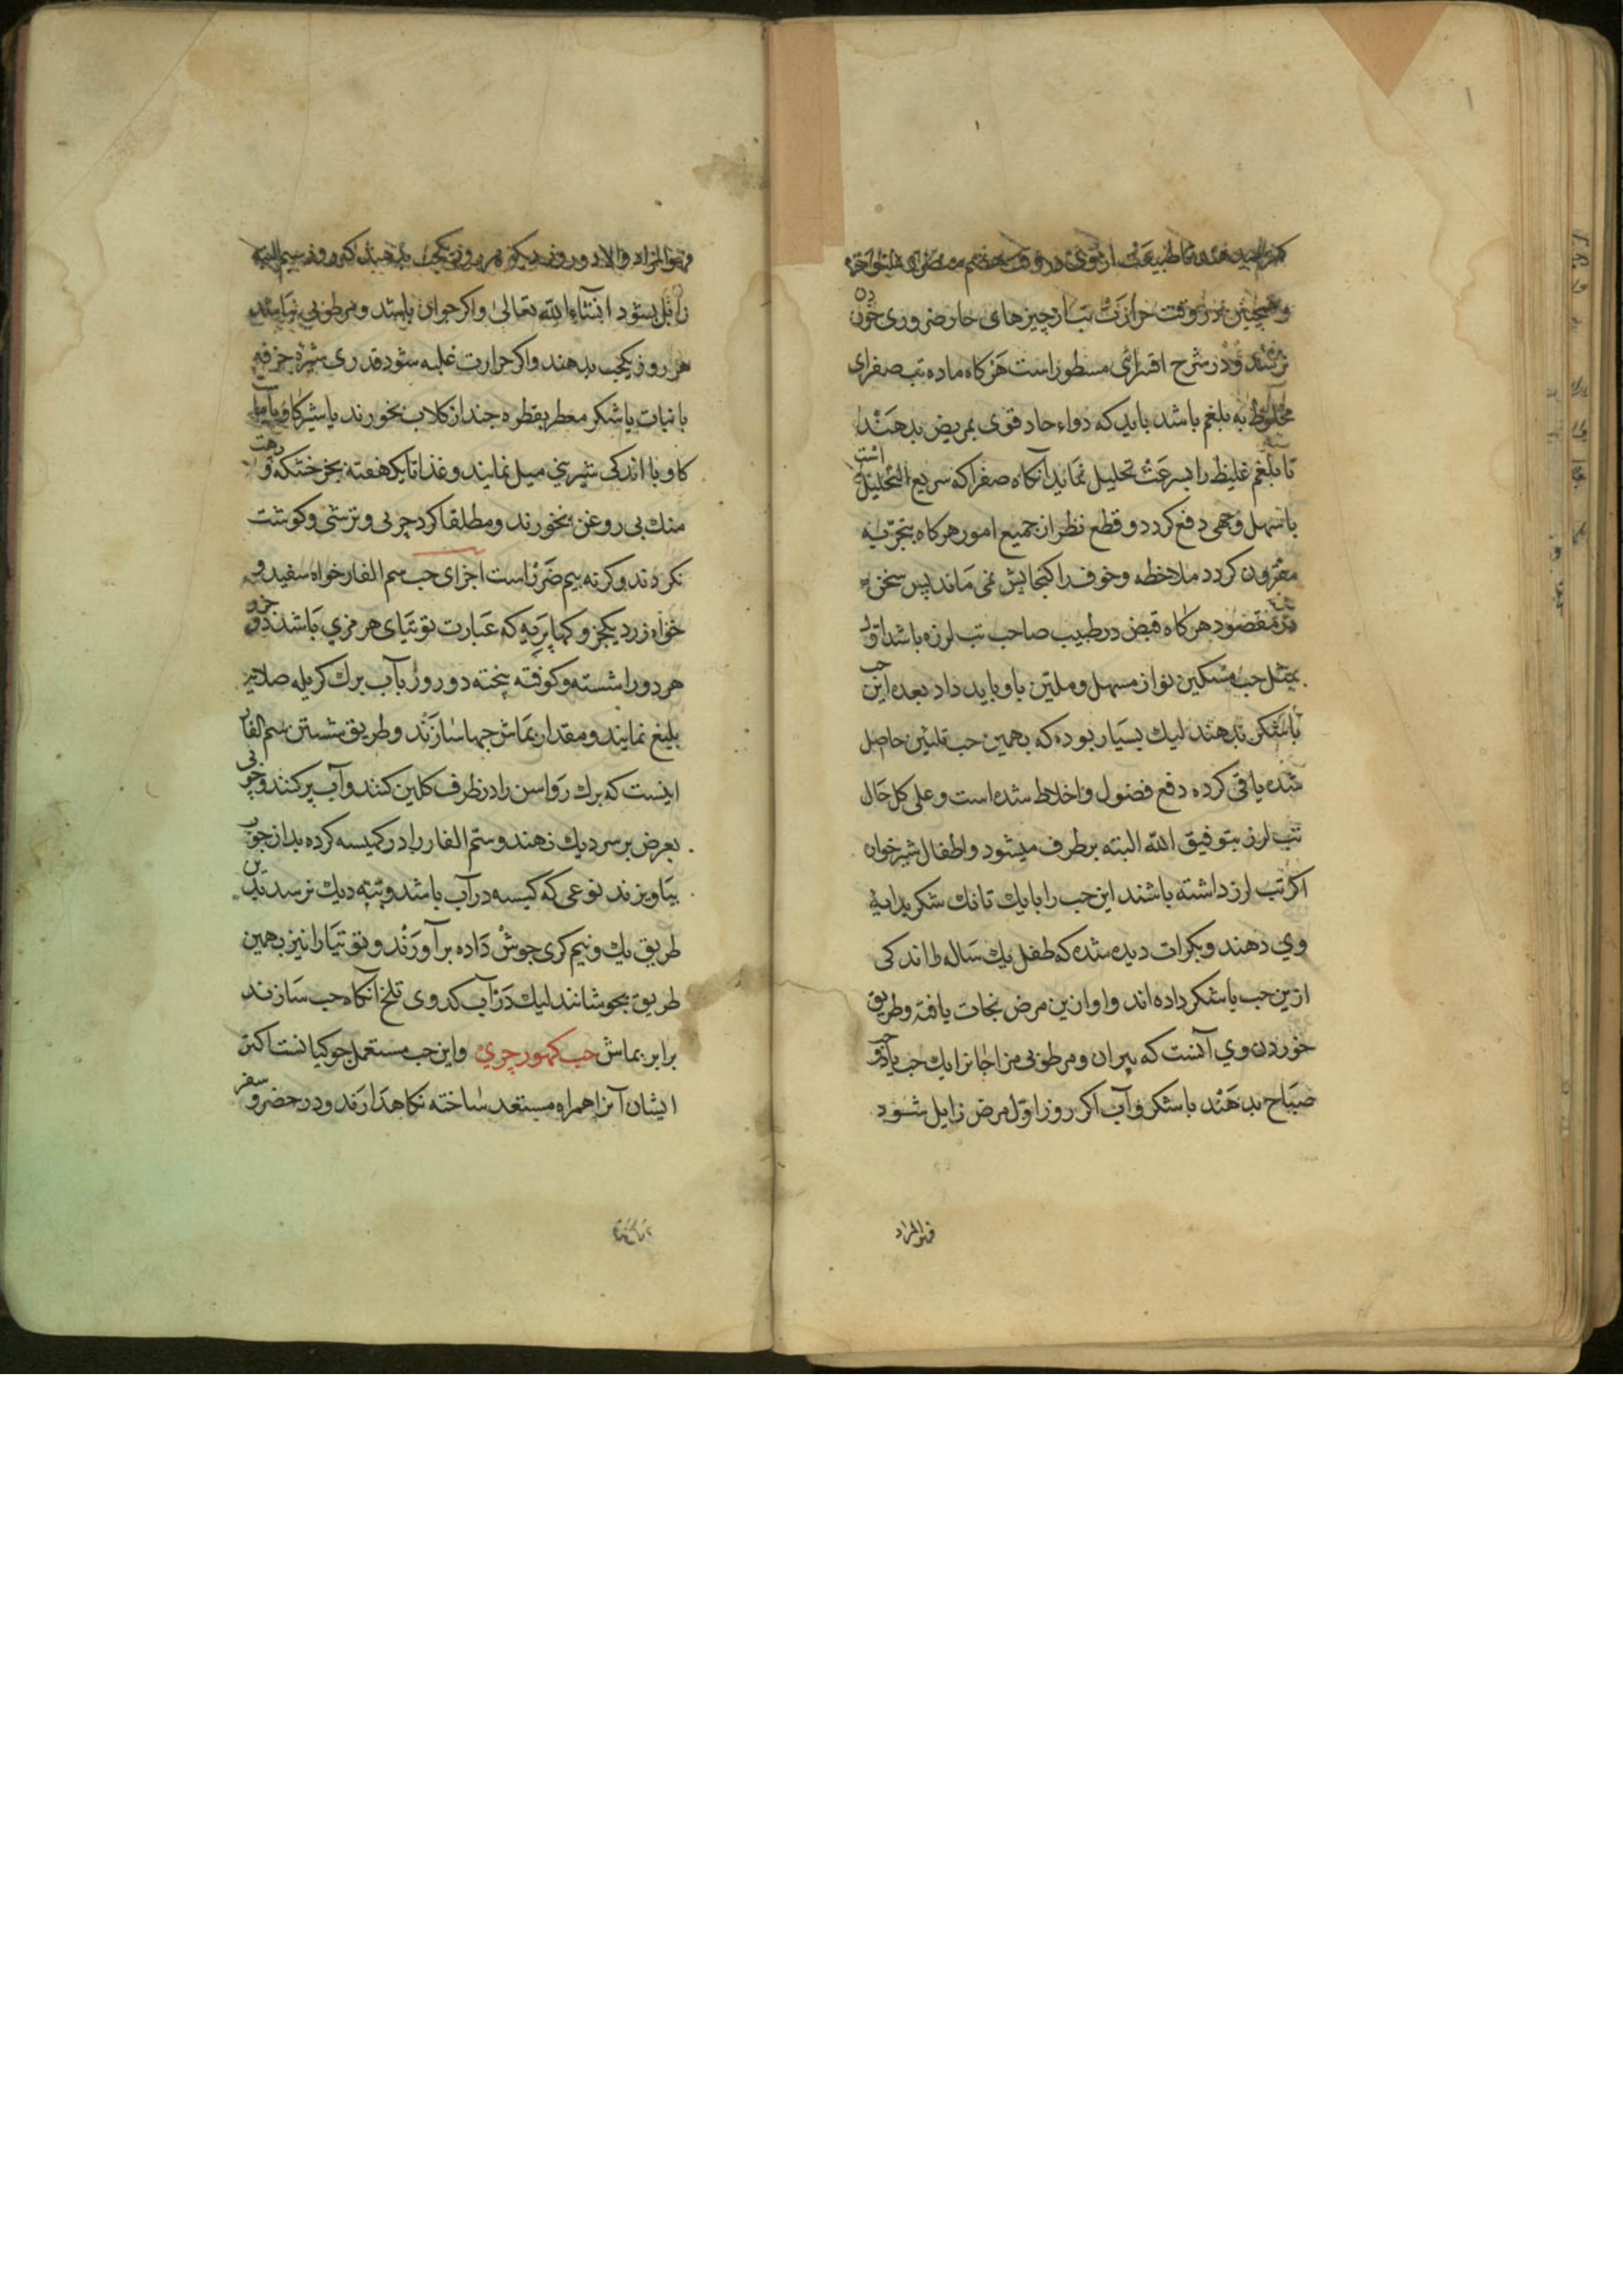 و همچنین در وقت حرارت تب از چیزهای حار ضروری خوردن
ترسند و در شرح اقسرائی مسطور است هر کاه ماده تب صفرای
مخلوط به بلغم باشد باید که دواء حاد قوی بمریض بدهند
تا بلغم غلیظ را بسرعت تحلیل نماید آنکاه صفرا که سریع التحلیل است
باسهل وجهی دفع کردد و قطع نظر از جمیع امور هر کاه بتجربه
مقرون کردد ملاحظه و خوف را کنجایش نمی ماند پس سخن
در مقصود هر کاه قبض در طبیب صاحب تب لرزه باشد اول
بمثل حب مسکین نواز مسهل و ملین باو باید داد بعده این حب
باشکر بدهند لیك بسیار بوده که بهمین حب تلیین حاصل
شده یا قی کرده دفع فضول و اخلاط شده است و علی کل حال
تب لرز بتوفیق الله البته برطرف میشود و اطفال شیرخوان
اکر تب لرز داشته باشند این حب را بایك تانك شکر بدایهٔ
وی دهند و بکرات دیده شده که طفل یك ساله را اندکی
ازین حب باشکر داده اند و او ازین مرض نجات یافته و طریق
خوردن وی آنست که پیران و مرطوبی مزاجانرا یك حب یا دو
صباح بدهند باشکر و آب اکر روز اول مرض زایل شود
فهو المراد
فهو المراد والا دو روز دیکر هر روز یکحب بدهند که روز سیم البته
زایل بشود انشاء الله تعالی و اکر جوان باشد و مرطوبی نباشد
هر روز یکحب بدهند و اکر حرارت غلبه شود قدری شیرهٔ خرفه
با نبات یا شکر معطر بقطرهٔ چند از کلاب بخورند یا شیر کاو یا ماست
کاو با اندکی شیرینی میل نمایند و غذا تا یکهفته بجز خشکه و
منك بی روغن نخورند و مطلقا کرد چربی و ترشی و کوشت
نکردند و کرنه بیم ضرر است اجزای حب سم الفار خواه سفید و
خواه زرد یکجز و کهاپریه که عبارت توتیای هرمزی باشد دو جزو
هر دو را شسته و کوفته پخته دو روز بآب برك کریله صلایه
بلیغ نمایند و مقدار بماش حبها سازند و طریق شستن سم الفار
اینست که برك رواسن را در ظرف کلین کنند و آب پر کنند و چوبی
بعرض بر سر دیك نهند و سم الفار را در کیسه کرده بدان چوب
بیاویزند نوعی که کیسه در آب باشد و بته دیك نرسد بدین
طریق یك و نیم کری جوش داده برآورند و توتیا را نیز بهمین
طریق بجوشانند لیك در آب کدوی تلخ آنکاه حب سازند
برابر بماش حب کهورچری و این حب مستعمل جوکیانست اکثر
ایشان آنرا همراه مستعد ساخته نکاهدارند و در حضر و سفر